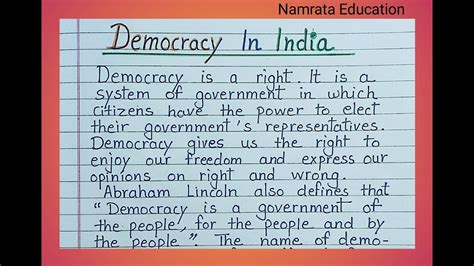 Namrata Education
Democracy In India
Democracy is a right. It is a
system of government in which
citizens have the power to elect
their government's representatives.
Democracy gives us the right to
enjoy our freedom and express our
opinions on right and wrong.
Abraham Lincoln also defines that
"Democracy is a government of
the people, for the people and by
the people". The name of demo-